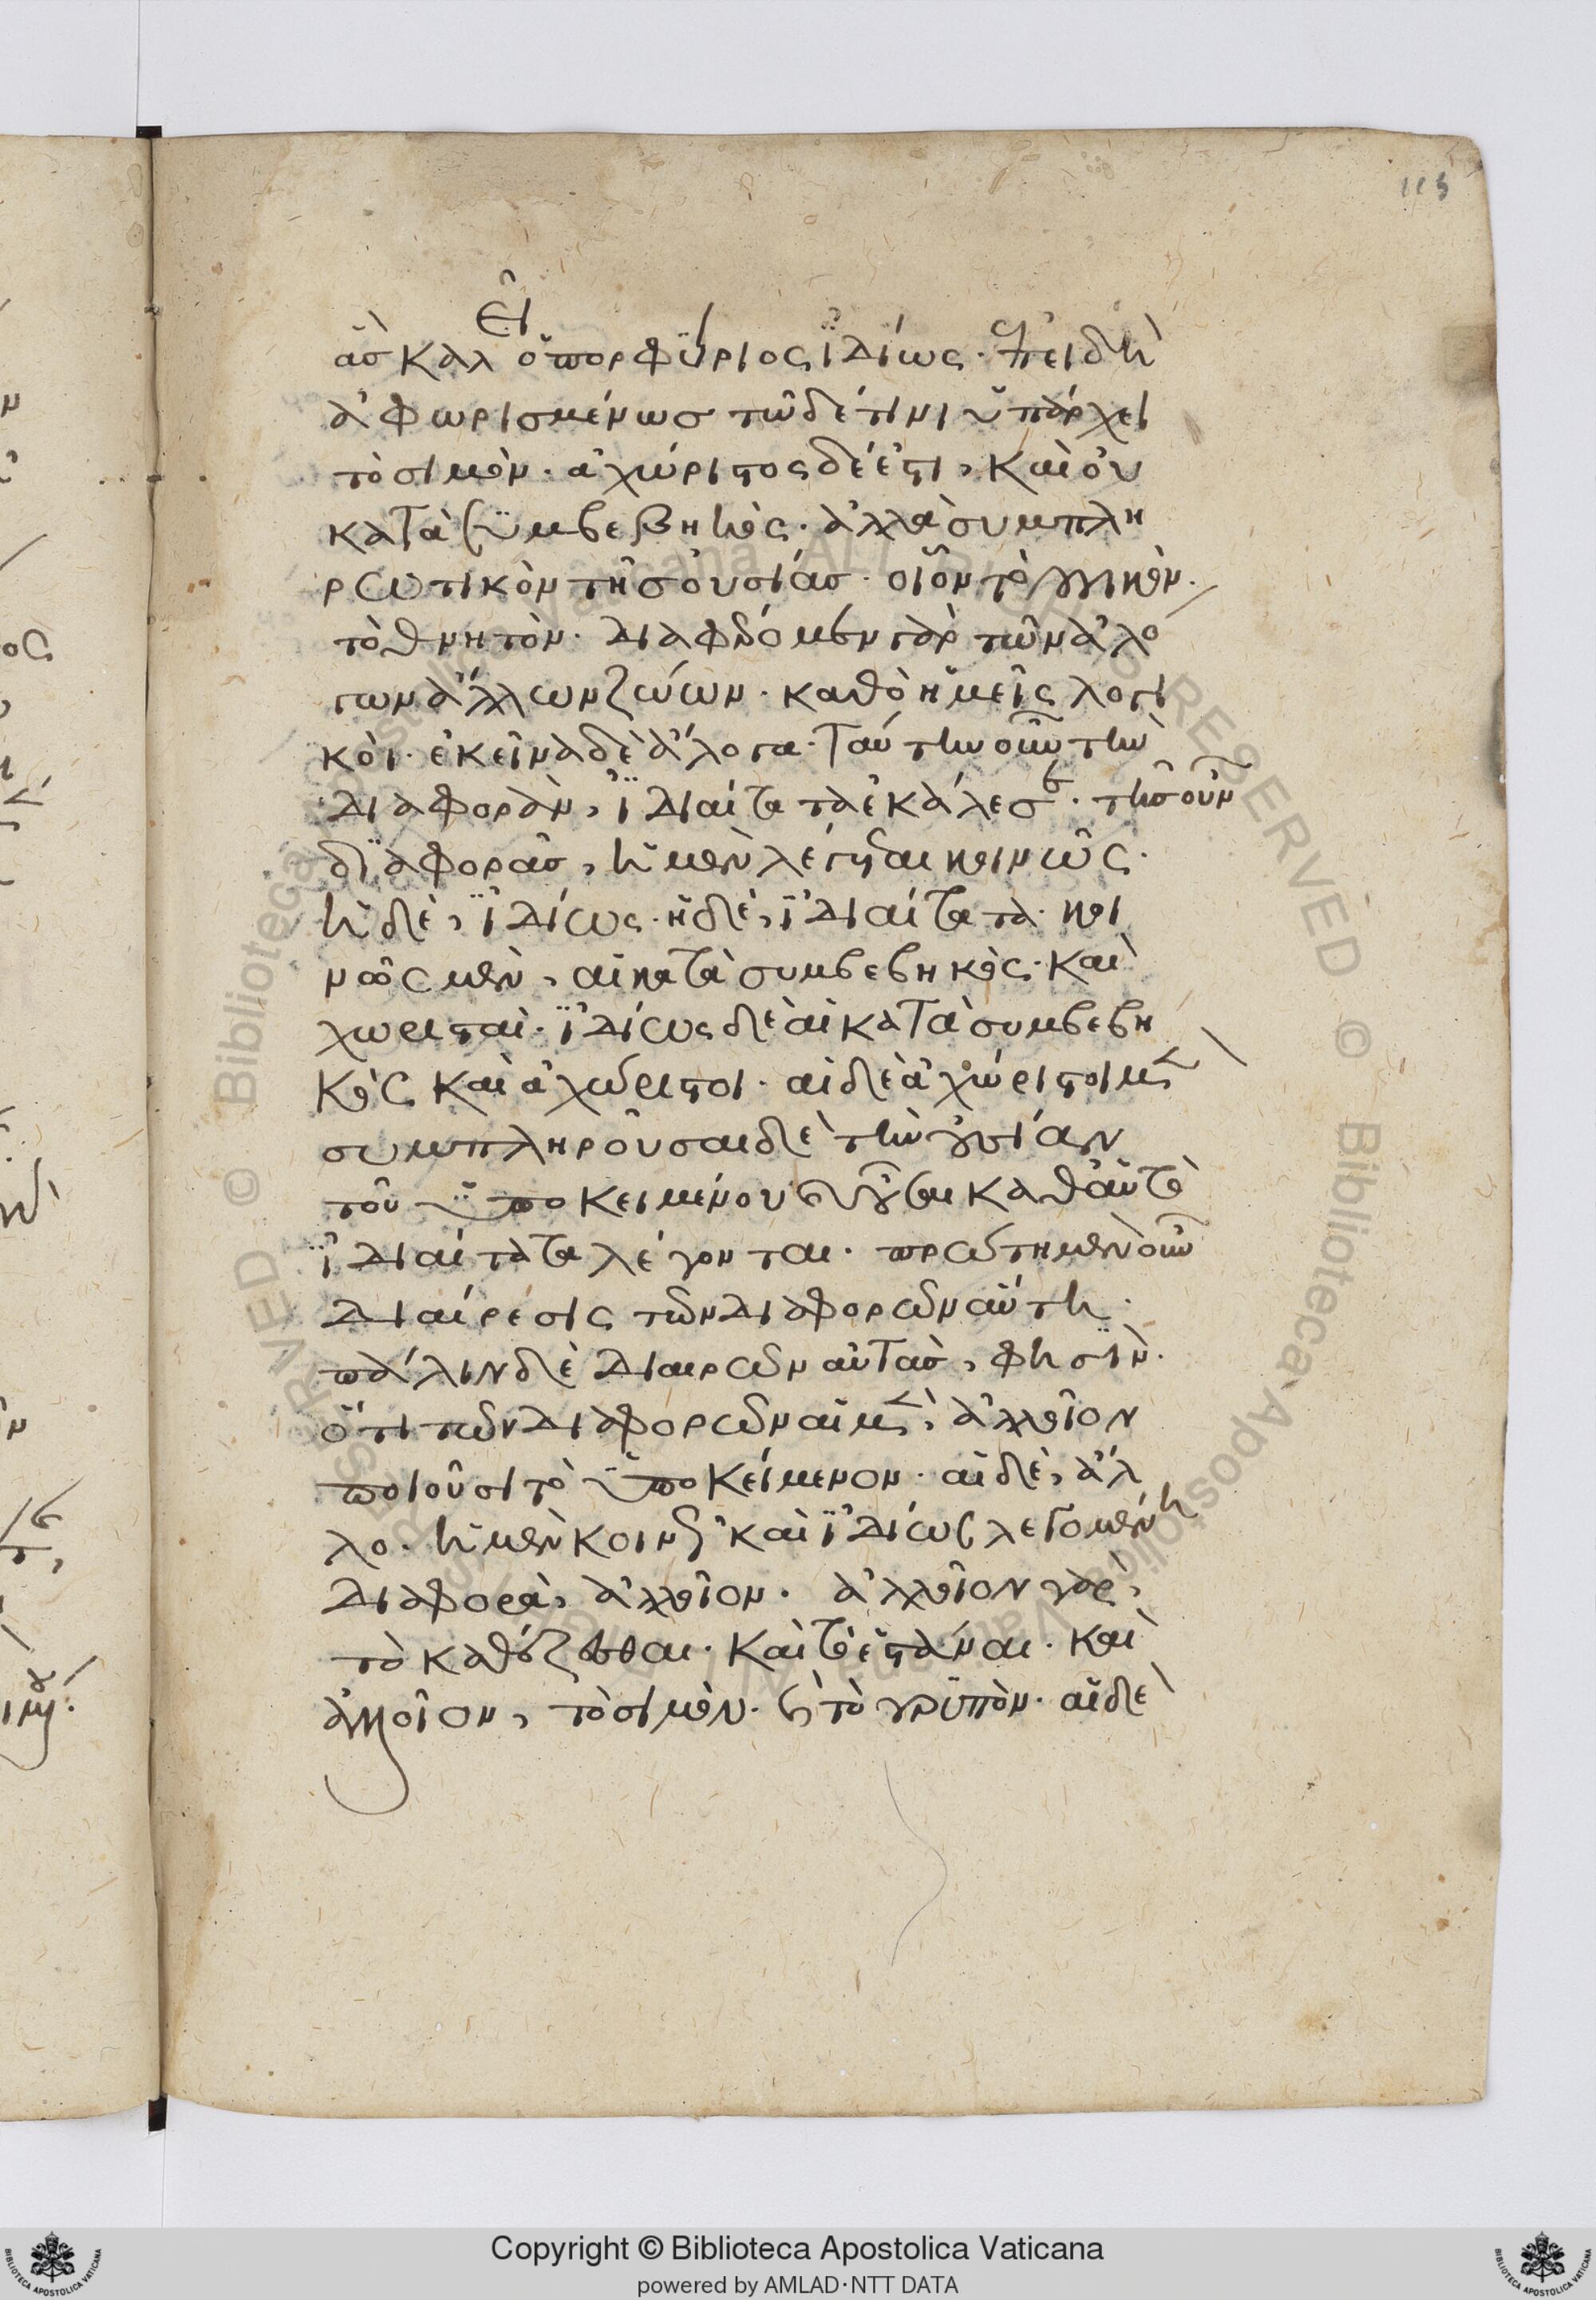 113
ἃσ καλεῖ ὁ πορφύριος ἰδίως· ἐπειδὴ
ἀφωρισμένωσ τῶδέ τινι ὑπάρχει
τὸ σιμὸν· ἀχώριστος δέ ἐστι, καὶ οὐ
κατὰ συμβεβηκὸς· ἀλλὰ συμπλη
ρωτικὸν τῆσ οὐσίασ· οἷον τὸ λογικὸν·
τὸ θνητὸν· διαφέρομεν γὰρ τῶν ἀλό
γων ἄλλων ζώων· καθὸ ἡμεῖς λογι
κοὶ· ἐκεῖνα δὲ ἄλογα· ταύτην οὖν τὴν
διαφορὰν, ἰδιαίτατα ἐκάλεσε· τῆσ οὖν
διαφορᾶσ, ἡ μὲν λέγεται κοινῶς·
ἡ δὲ, ἰδίως· ἡ δὲ, ἰδιαίτατα· κοι
νῶς μὲν, αἱ κατὰ συμβεβηκὸς· καὶ
χωρισταὶ· ἰδίως δὲ αἱ κατὰ συμβεβη
κὸς καὶ ἀχώριστοι· αἱ δὲ ἀχώριστοι μὲν
συμπληροῦσαι δὲ τὴν οὐσίαν
τοῦ ὑποκειμένου καθαυτὸ
ἰδιαίτατα λέγονται· πρώτη μὲν οὖν
διαίρεσις τῶν διαφορῶν αὕτη·
πάλιν δὲ διαιρῶν αὐτὰσ, φησὶν·
ὅτι τῶν διαφορῶν αἱ μὲν, ἀλλοῖον
ποιοῦσι τὸ ὑποκείμενον· αἱ δὲ, ἄλ
λο· ἡ μὲν κοινῶς καὶ ἰδίως λεγομένη
διαφορὰ, ἀλλοῖον· ἀλλοῖον γὰρ,
τὸ καθέζεσθαι· καὶ τὸ ἑστάναι· καὶ
ἀλλοῖον, τὸ σιμὸν· καὶ τὸ γρυπὸν· αἱ δὲ
© Biblioteca Apostolica Vaticana ALL RIGHTS RESERVED
Copyright © Biblioteca Apostolica Vaticana
powered by AMLAD·NTT DATA
BIBLIOTECA APOSTOLICA VATICANA
BIBLIOTECA APOSTOLICA VATICANA